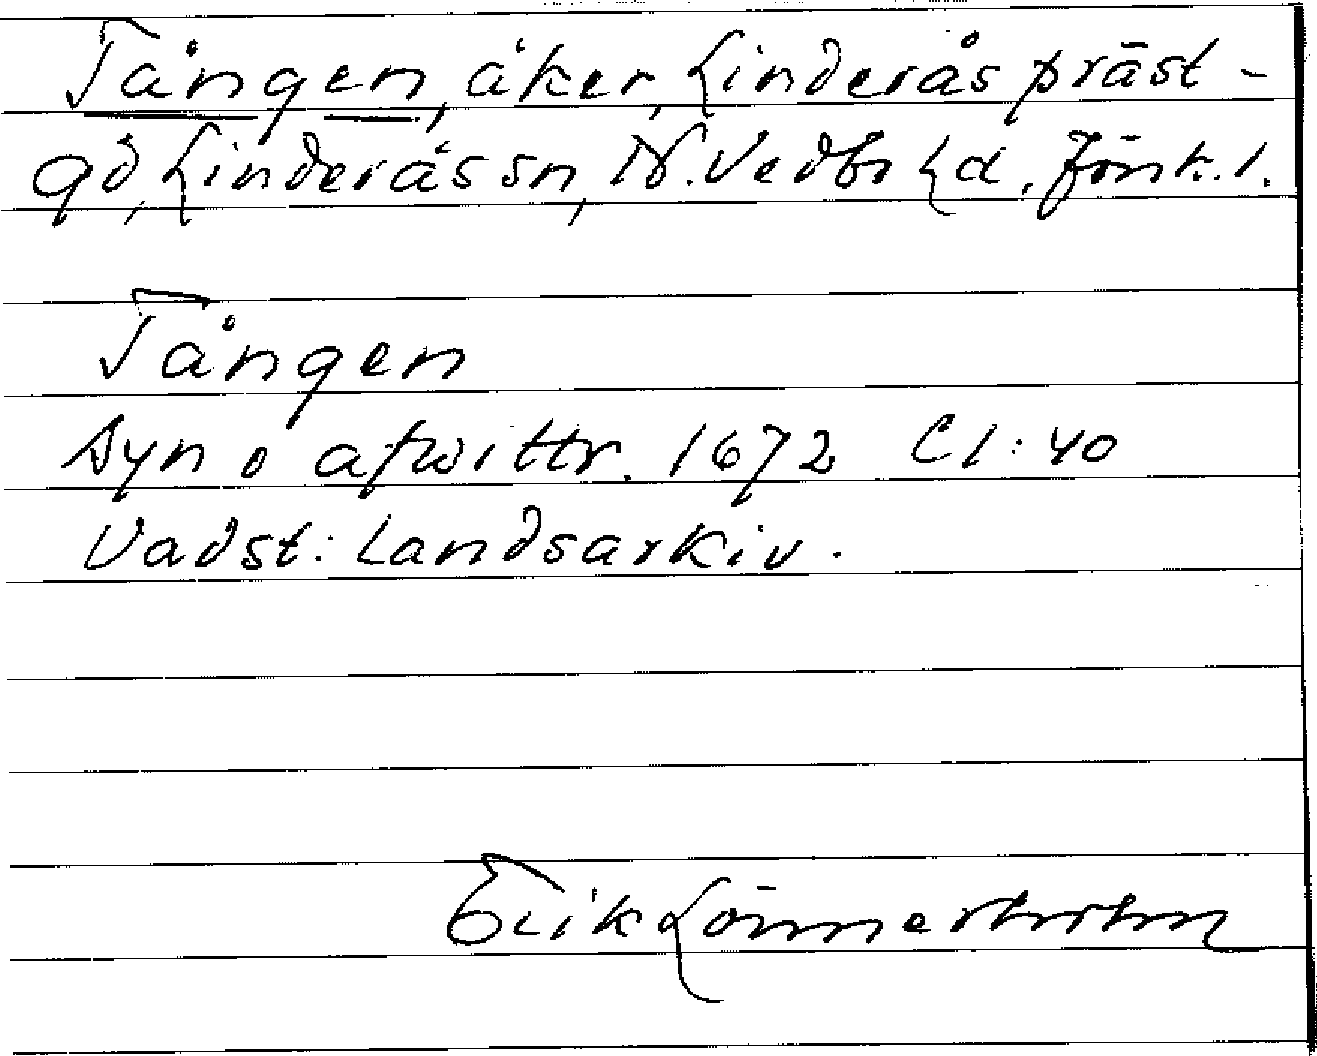 Tången, åker, Linderås präst-
gd, Linderås sn, N. Vedbo hd. Jönk. l.
Tången
Syn o afwittr. 1672 C I: 40
Vadst: Landsarkiv.
Erik Lönnerholm